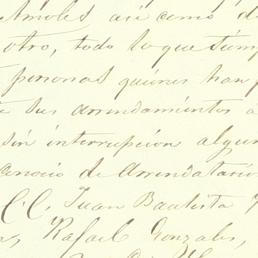 así como d
otro, todo lo que
personas quienes han
sus arrendamientos a
sin interrupción algun
de arrendatario
C.C. Juan Bautista
Rafael Gonzales,